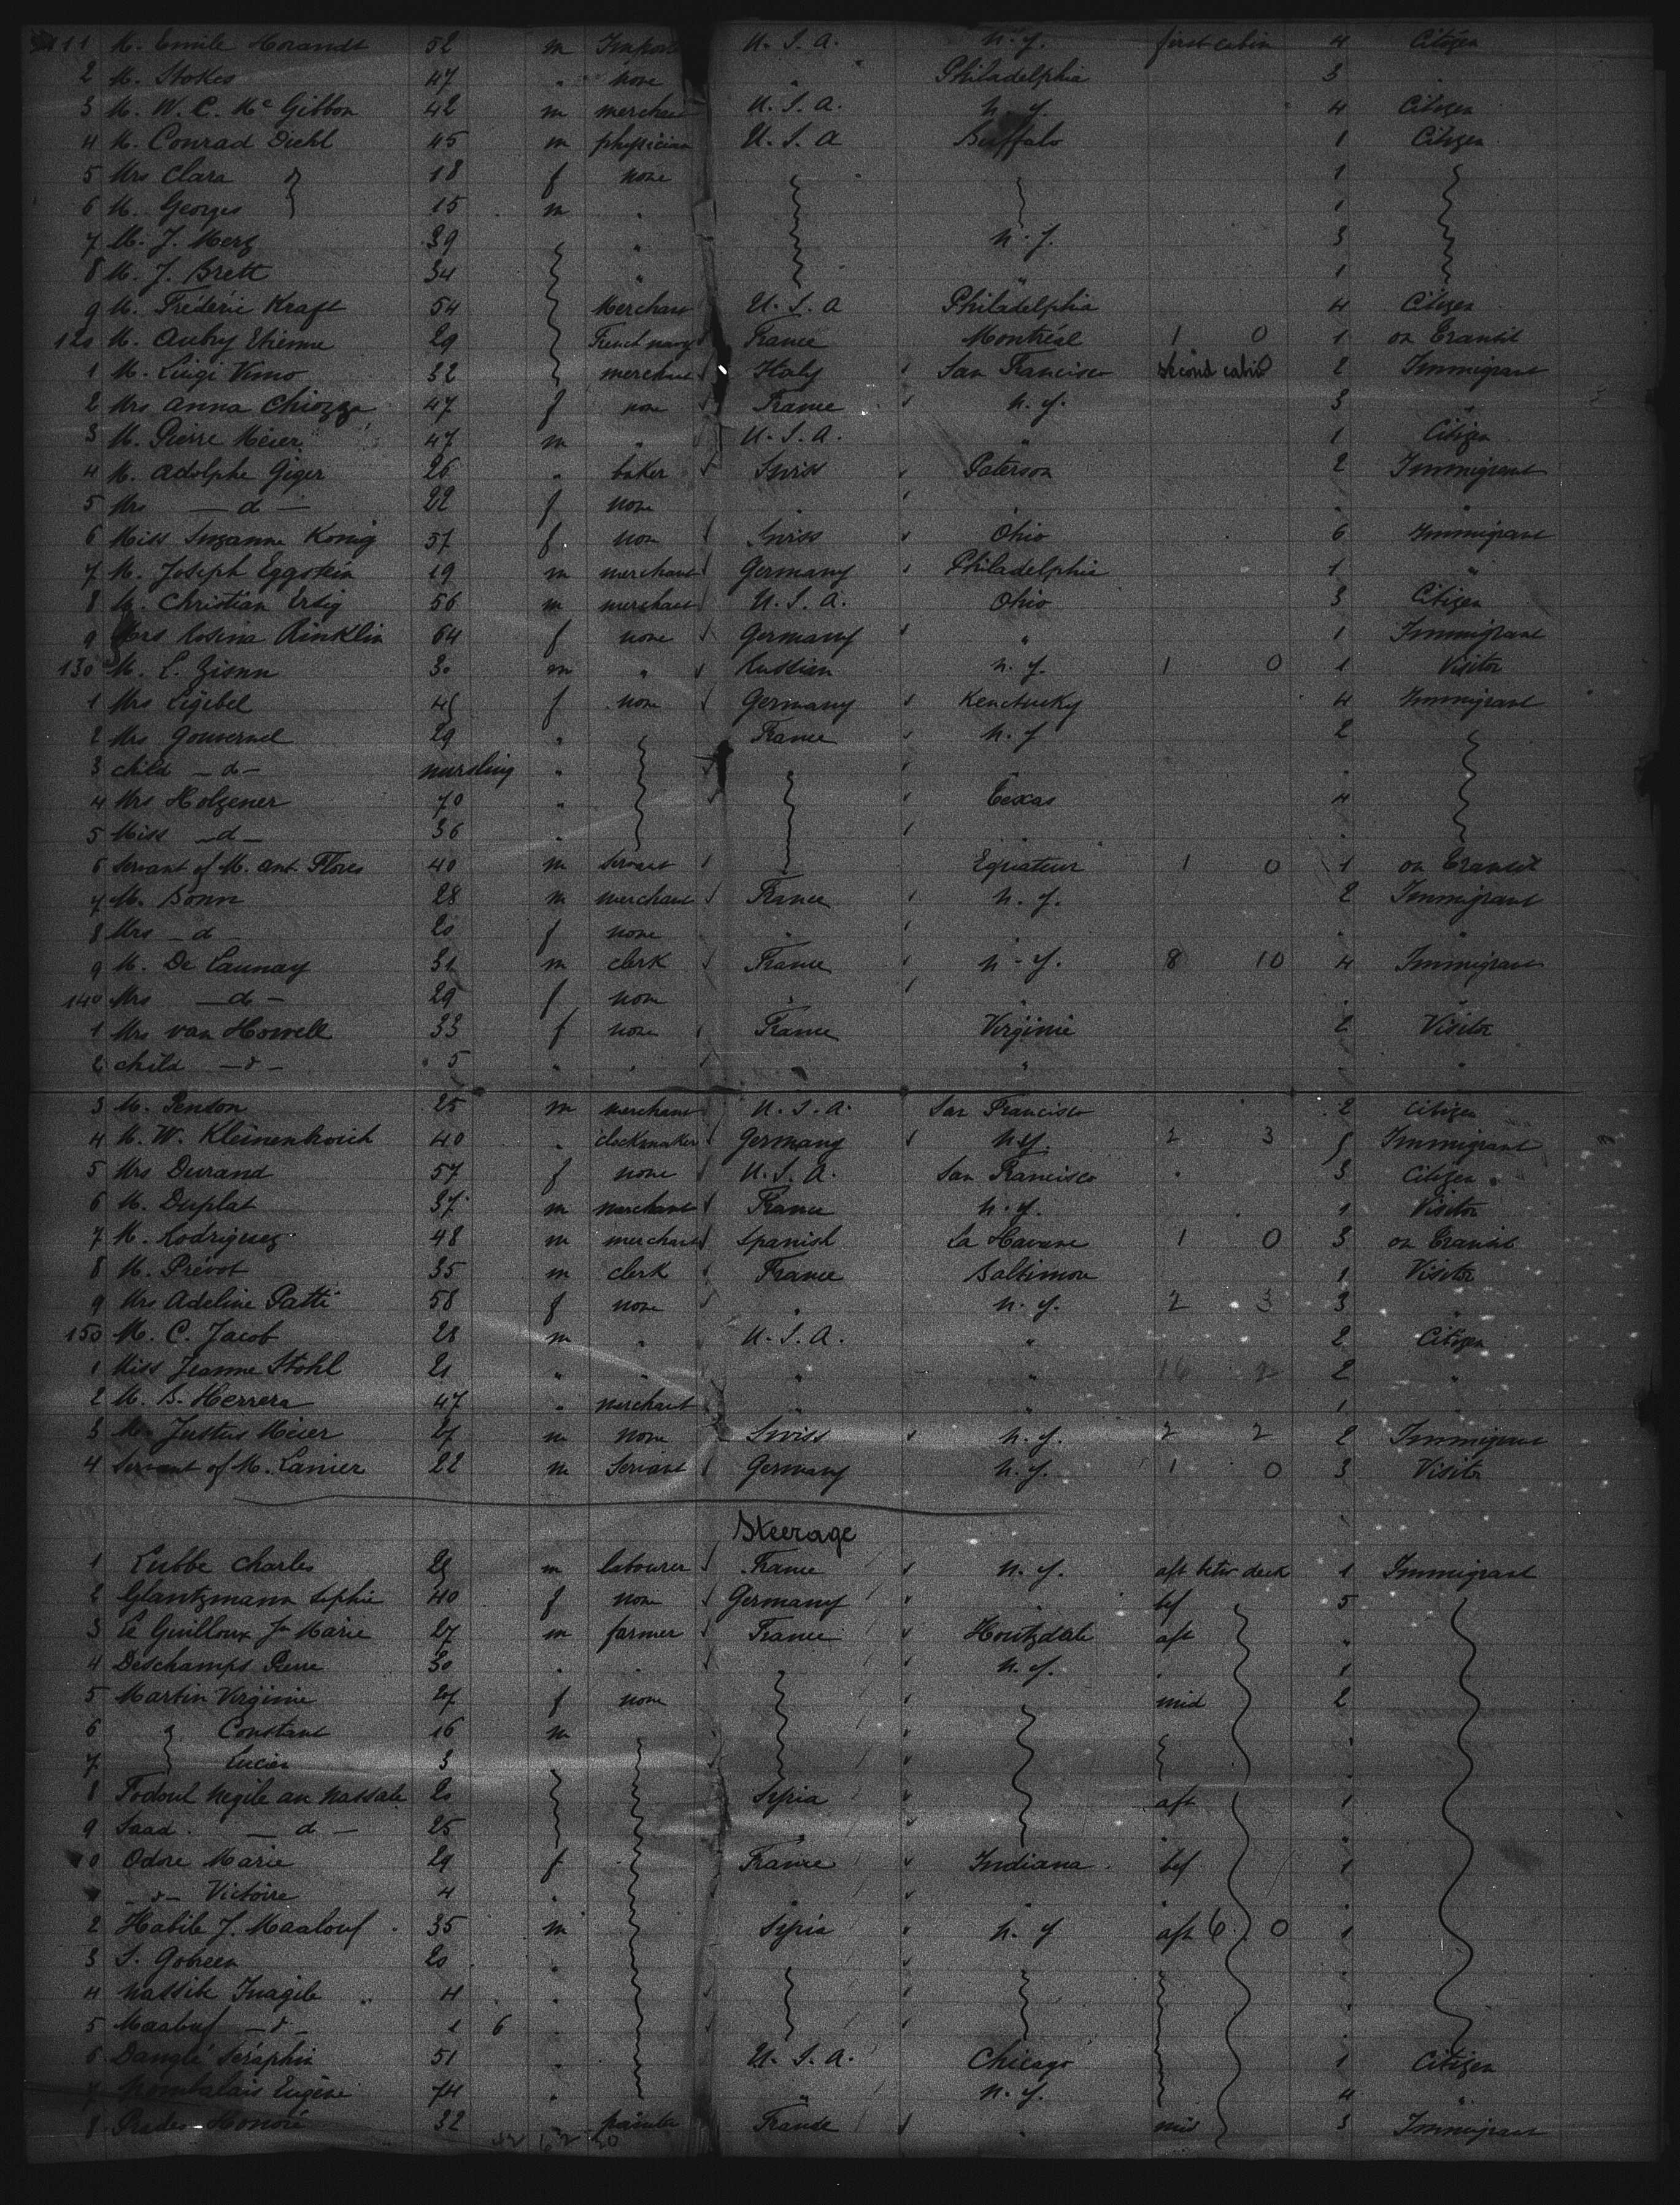 111 M. Emile Morandt 52 m Import U. S. A. N. y. first cabin 4 Citizen
2 M. Stokes 47 " none " Philadelphia 3 "
3 M. W. C. Mc Gibbon 42 m merchant U. S. A. N. y. 4 Citizen
4 M. Conrad Diehl 45 m physician U. S. A Buffalo 1 Citizen
5 Mrs Clara 18 f none 1
6 M. Georges 15 m " 1
7 M. J. Merz 39 " N. y. 3
8 M. J. Brett 34 " " 1
9 M. Fréderic Kraft 54 Merchant U. S. A Philadelphia 4 Citizen
120 M. Aubry Etienne 29 French navy France Montréal 1 0 1 on Transit
1 M. Luigi Vimo 32 merchant Italy San Francisco second cabin 2 Immigrant
2 Mrs Anna Chiozza 47 f none France N. y. 3 "
3 M. Pierre Meier 47 m " U. S. A. " 1 Citizen
4 M. Adolphe Giger 26 " baker Swiss Paterson 2 Immigrant
5 Mrs — d — 22 f none " " " "
6 Miss Suzanne Konig 57 f non Swiss Ohio 6 Immigrant
7 M. Joseph Eggstein 19 m merchant Germany Philadelphie 1 "
8 M. Christian Ersig 56 m merchant U. S. A. Ohio 3 Citizen
9 Mrs Rosina Rinklin 64 f none Germany " 1 Immigrant
130 M. L. Zisnn 30 m " Russian N. y. 1 0 1 Visitor
1 Mrs Ligibel 45 f none Germany Kenctucky 4 Immigrant
2 Mrs Gouvernel 29 " France N. y 2
3 child — d — nursling " " "
4 Mrs Holzener 70 " Texas 4
5 Miss — d — 36 " " "
6 Servant of M. Ant. Flores 40 m servant Equateur 1 0 1 on Transit
7 M. Bonn 28 m merchant France N. y. 2 Immigrant
8 Mrs — d — 20 f none " " " "
9 M. De Launay 31 m clerk France N. y. 8 10 4 Immigrant
140 Mrs — d — 29 f non " " " "
1 Mrs van Howell 33 f none France Virginie 2 Visitor
2 child — d — 5 " " " " " "
3 M. Penson 25 m merchant U. S. A. San Francisco 2 Citizen
4 M. W. Kleinenbroich 40 " clocksmaker Germany N. y. 2 3 5 Immigrant
5 Mrs Durand 57 f none U. S. A. San Francisco 3 Citizen
6 M. Duplat 37 m merchant France N. y. 1 Visitor
7 M. Rodriguez 48 m merchant Spanish La Havane 1 0 3 on Transit
8 M. Prévot 35 m clerk France Baltimore 1 Visitor
9 Mrs Adeline Patti 58 f none " N. y. 2 3 3 "
150 M. C. Jacob 28 m " U. S. A. " 2 Citizen
1 Miss Jeanne Stohl 21 " " " " 16 2 2 "
2 M. B. Herrera 47 " merchant " " 1 "
3 M. Justus Meier 27 m none Swiss N. y. 2 2 2 Immigrant
4 Servant of M. Lanier 22 m Servant Germany N. y. 1 0 3 Visitor
Steerage
1 Lubbe Charles 25 m labourer France N. y. aft betw deck 1 Immigrant
2 Glantzmann Sophie 40 f none Germany " bef 5
3 Le Guilloux Jn Marie 27 m farmer France Houtzdale aft "
4 Deschamps Pierre 30 " " N. y. " 1
5 Martin Virginie 27 f none mid 2
6 Constant 16 m "
7 Lucien 3 "
8 Fodoul Negile an Nassale 20 Syria aft 1
9 Saad — d — 25 " " "
0 Odore Marie 29 f France Indiana bef 1
1 — d — Victoire 4 " " " " "
2 Habib J. Maalouf 35 m Syria N. y aft 6 0 1
3 S. Gobreen 20 " "
4 Nassib Inagile 4 " "
5 Maabuf — d — 1 6 " "
6 Danglé Séraphin 51 " U. S. A. Chicago 1 Citizen
7 Nombalais Eugène 74 " " N. y. 4 "
8 Prades Honoré 32 painter France " mid 3 Immigrant